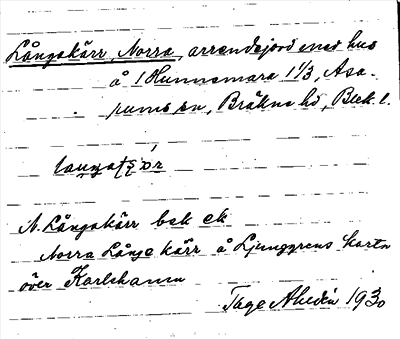 Långakärr, Norra, arrendejord med hus
å 1 Hunnemara 1 1/3, Asa-
rums sn, Bräkne hd, Blek. l.
N. Långakärr bsk ek
Norra Långe kärr å Ljunggrens karta
över Karlshamn
Tage Ahldén 1930